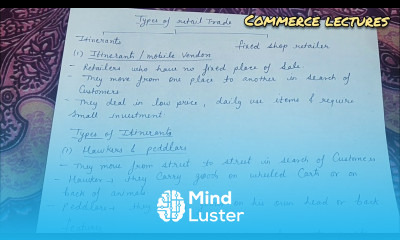 Types of retail Trade
Commerce lectures
Itinerants
fixed shop retailer
(1) Itinerants / mobile vendors
- Retailers who have no fixed place of sale.
- They move from one place to another in search of
Customers
- They deal in low price, daily use items & require
small investment
Types of Itinerants
(1) Hawkers & peddlars
- They move from street to street in search of Customers
- Hawkers they Carry goods on wheeled Carts or on
back of animals
- peddlars on his own head or back
Mind
Luster